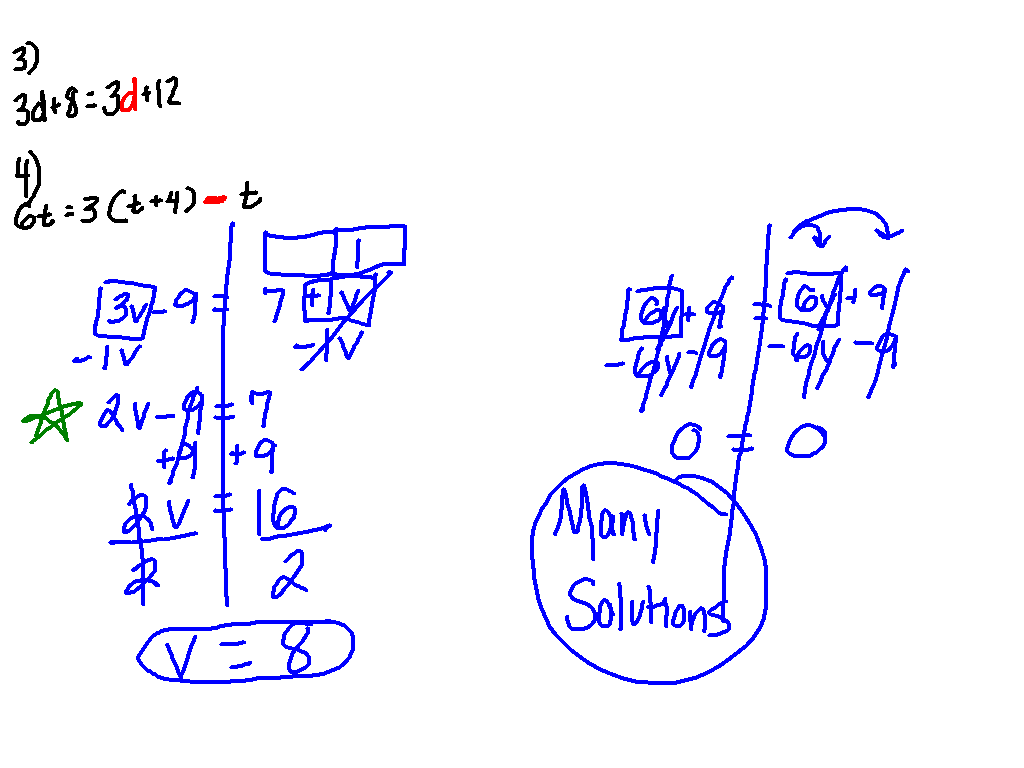 3)
3d+8=3d+12
4)
6t=3(t+4)-t
1
3v-9 = 7+1v
-1v -1v
2v-9 = 7
+9 +9
2v = 16
2 2
v = 8
6y+9 = 6y+9
-6y-9 -6y-9
0 = 0
Many
Solutions